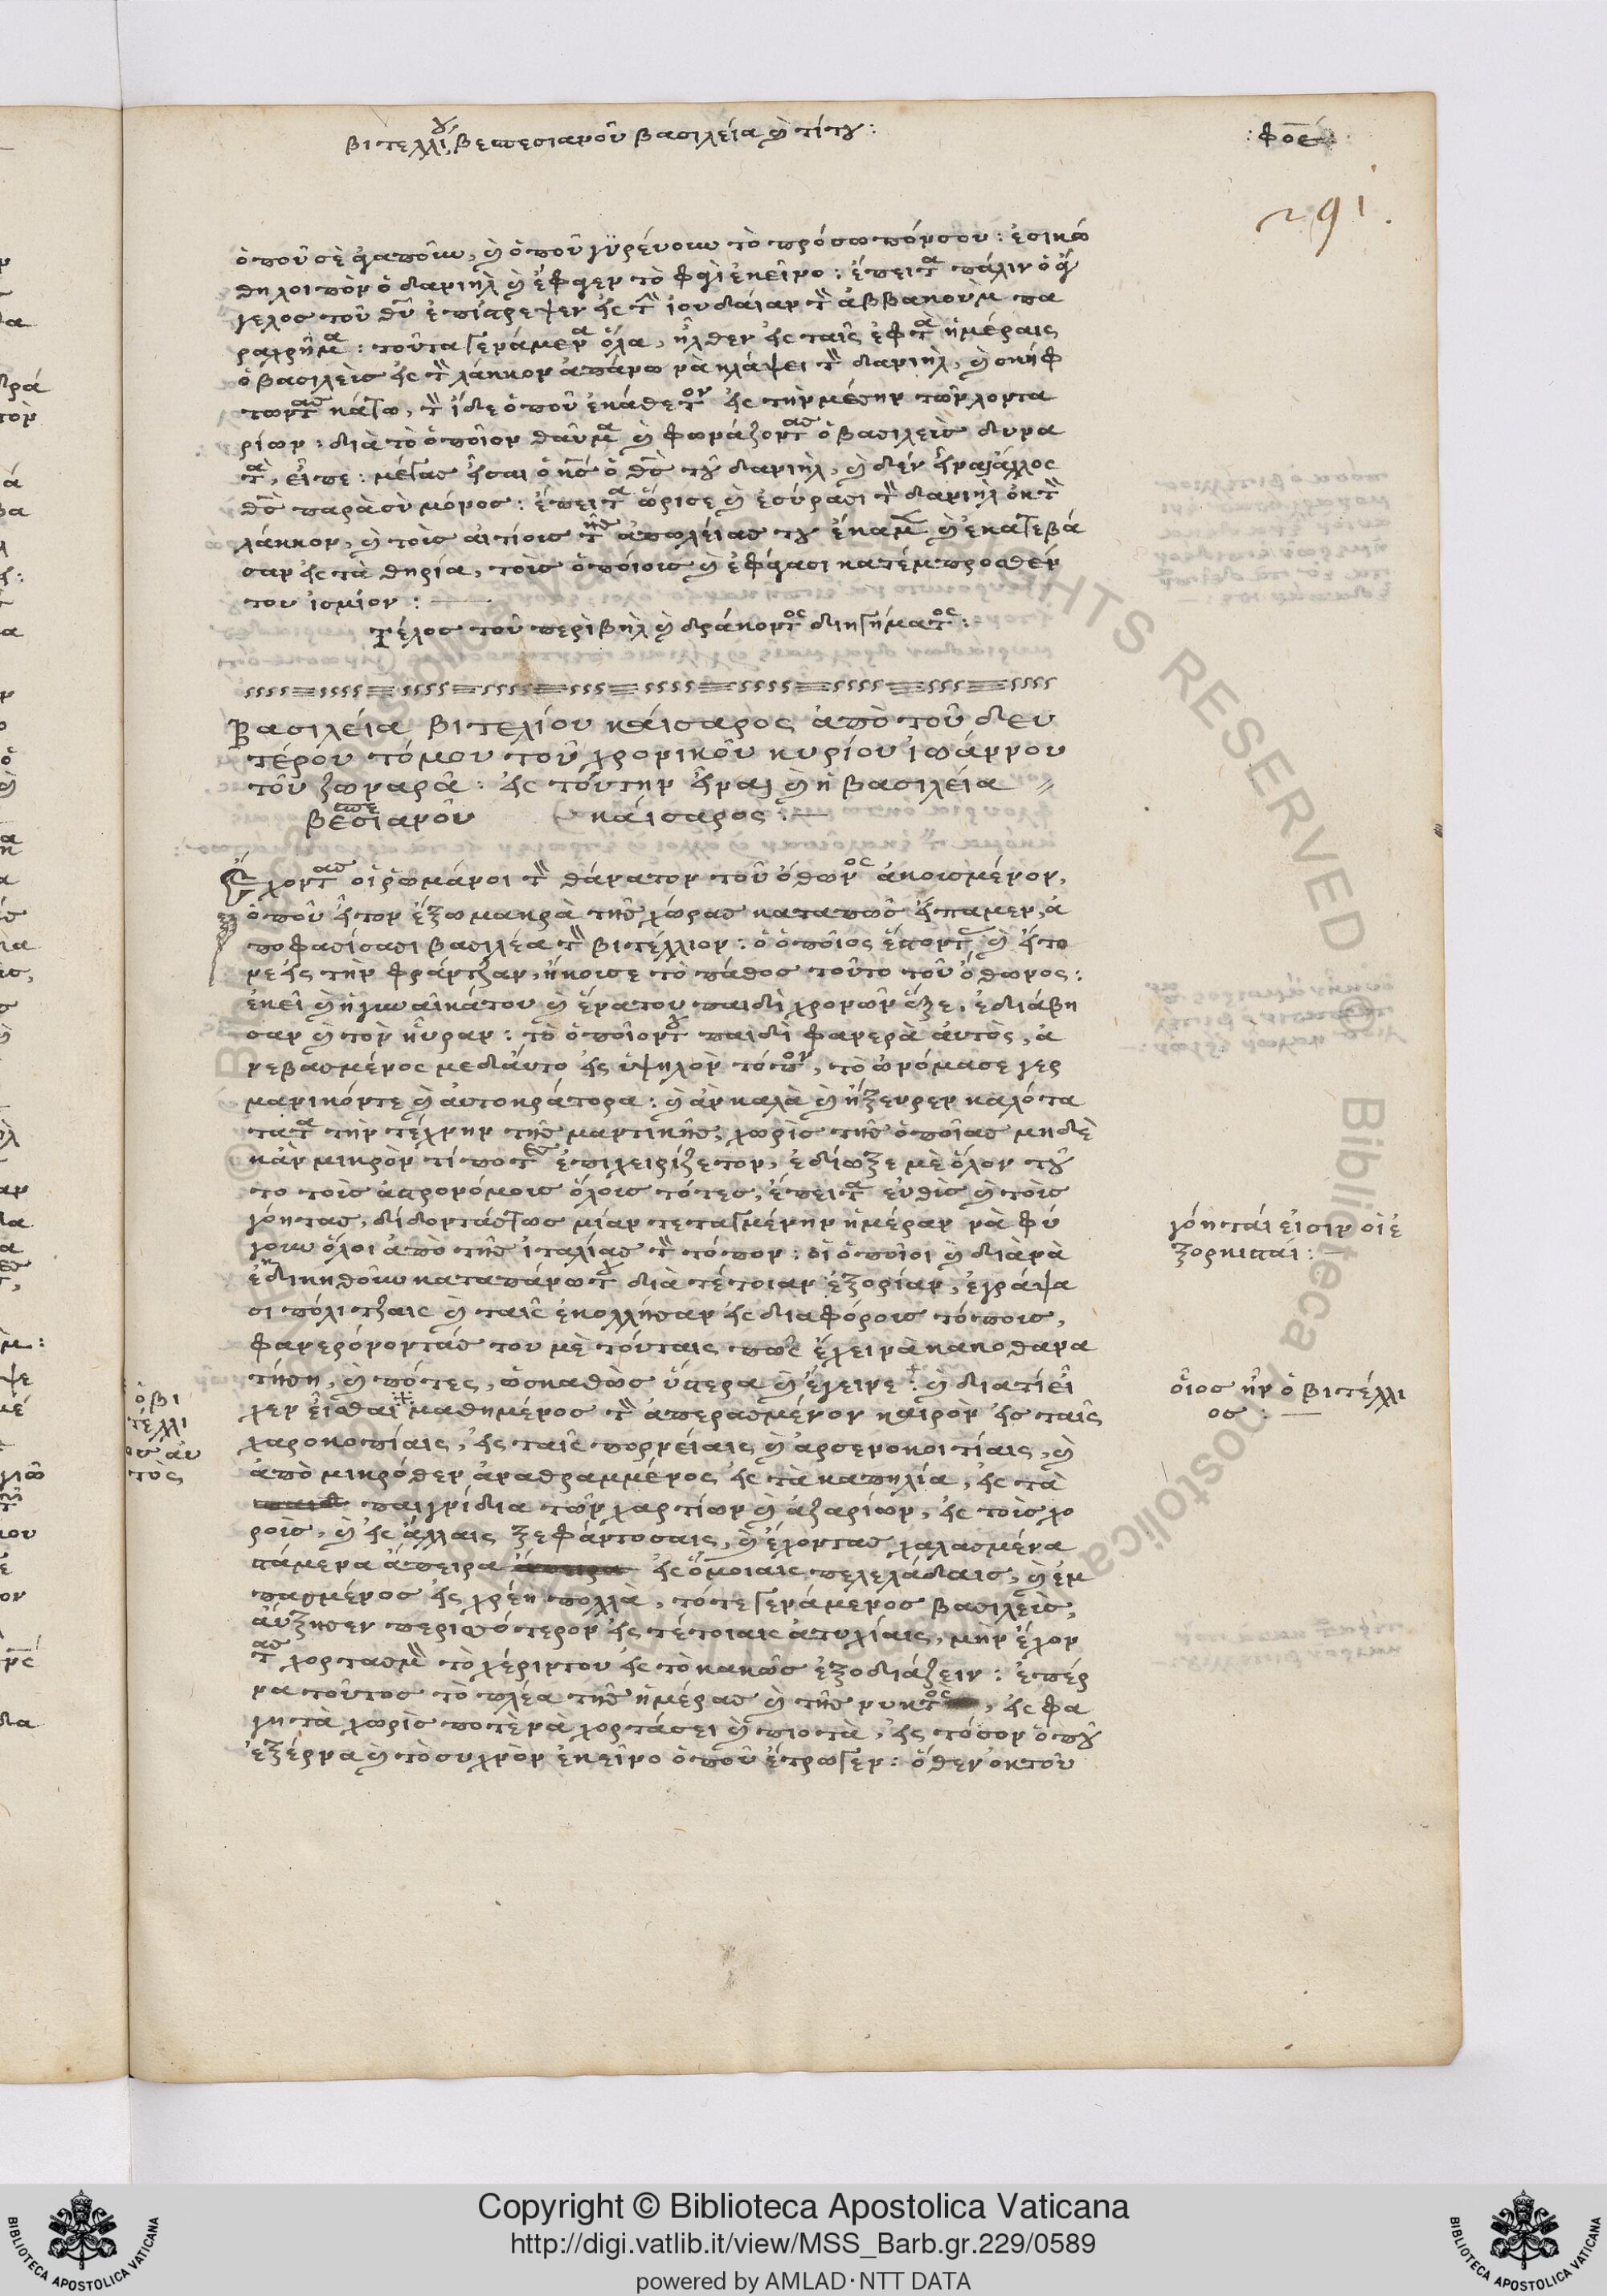 βιτελλίου, βεσπεσιανοῦ βασιλεία καὶ τίτου:
:φοε:
291.
ὁποῦ σὲ ἀγαποῦν, καὶ ὁποῦ γυρεύουν τὸ πρόσωπόν σου: ἐσικώ
θη λοιπὸν ὁ δανιὴλ καὶ ἔφαγεν τὸ φαγὶ ἐκεῖνο: ἔπειτα πάλιν ὁ ἄγ
γελος τοῦ θῦ ἐπίστρεψεν εἰς τὴν ἰουδαίαν τὸν ἀββακοὺμ πα
ραχρῆμα: τοῦτα γενάμενα ὅλα, ἦλθεν εἰς ταῖς ἐφτὰ ἡμέραις
ὁ βασιλεὺς εἰς τὸν λάκκον ἀπάνω νὰ κλάψει τὸν δανιὴλ, καὶ σκύφ
τωντας κάτω, τὸν ἴδε ὁποῦ ἐκάθετον εἰς τὴν μέσην τῶν λοντα
ρίων: διὰ τὸ ὁποῖον θαῦμα καὶ φωνάζοντας ὁ βασιλεὺς δυνα
τὰ, εἶπε: μέγας εἶσαι ὁ κς ὁ θς τοῦ δανιὴλ, καὶ δὲν εἶναι ἄλλος
θς παρὰ σὺ μόνος: ἔπειτα ὥρισε καὶ ἐσύρασι τὸν δανιὴλ ὀκ τὸν
λάκκον, καὶ τοὺς αἰτίους τῆς ἀπωλείας του ἔκαμαν καὶ ἐκατεβά
σαν εἰς τὰ θηρία, τοὺς ὁποίους καὶ ἐφάγασι κατέμπροσθέν
του ἰσμίον:
Τέλος τοῦ περὶ βὴλ καὶ δράκοντος διηγήματος:
Βασιλεία βιτελίου κάισαρος ἀπὸ τοῦ δευ
τέρου τόμου τοῦ χρονικοῦ κυρίου ἰωάννου
τοῦ ζωναρᾶ: εἰς τούτην εἶναι καὶ ἡ βασιλεία
βεσπεσιανοῦ κάισαρος:
Ἔχοντας οἱ ῥωμάνοι τὸν θάνατον τοῦ ὄθωνος ἀκουσμένον,
ὁποῦ ἦτον ἔξω μακρὰ τῆς χώρας καταπῶς εἴπαμεν, ἀ
ποφασίσασι βασιλέα τὸν βιτέλλιον: ὁ ὁποῖος ἔστοντας καὶ ἦτο
νε εἰς τὴν φράντζαν, ἤκουσε τὸ πάθος τοῦτο τοῦ ὄθωνος:
ἐκεῖ καὶ ἡ γυναῖκά του καὶ ἕνα του παιδὶ χρονῶν ἕξε, ἐδιάβη
σαν καὶ τὸν ηὗραν: τὸ ὁποῖον του παιδὶ φανερὰ ἀυτὸς, ἀ
νεβασμένος μεδαύτο εἰς ὑψηλὸν τόπον, τὸ ὠνόμασε γερ
μανικόντε καὶ ἀυτοκράτορα: καὶ ἂν καλὰ καὶ ἤξευρεν καλότα
τατα τὴν τέχνην τῆς μαντικῆς, χωρὶς τῆς ὁποίας μηδὲ
κἂν μικρὸν τίποτας ἐπιχειρίζετον, ἐδίωξε μὲ ὅλον τοῦ
το τοὺς ἀστρονόμους ὅλους τότες, ἔπειτα εὐθὺς καὶ τοὺς
γόητας, δίδοντάς τως μίαν τεταγμένην ἡμέραν νὰ φύ
γουν ὅλοι ἀπὸ τῆς ἰταλίας τὸν τόπον: οἱ ὁποῖοι καὶ διὰ νὰ
ἐδικηθοῦν καταπάνω του διὰ τέτοιαν ἐξορίαν, ἐγράψα
σι πόλιτζαις καὶ ταῖς ἐκολλήσαν εἰς διαφόρους τόπους,
φανερόνοντάς του μὲ τόυταις πῶς ἔχει νὰ κακοθανα
τήση, καὶ πότες, ὡσκαθὼς ὕστερα καὶ ἔγεινε: καὶ διατὶ εἶ
χεν εἶσθαι μαθημένος τὸν ἀπερασμένον καιρὸν εἰς ταῖς
χαροκοπίαις, εἰς ταῖς πορνείαις καὶ ἀρσενοκοιτίαις, καὶ
ἀπὸ μικρόθεν ἀναθραμμένος εἰς τὰ καπηλία, εἰς τὰ
παιγνίδια τῶν χαρτίων καὶ ἀζαρίων, εἰς τοὺς χο
ροὺς, καὶ εἰς ἄλλαις ξεφάντοσαις, καὶ ἔχοντας χαλασμένα
πάμενα ἄπειρα εἰς ὅμοιαις πελελάδαις, καὶ ἐμ
πασμένος εἰς χρέη πολλὰ, τότε γενάμενος βασιλεὺς,
ἀύξησεν περισσότερον εἰς τέτοιαις ἀτυχίαις, μὴν ἔχον
τας χορτασμὸν τὸ χέριν του εἰς τὸ κακῶς ἐξοδιάζειν: ἐπέρ
να τοῦτος τὸ πλέα τῆς ἡμέρας καὶ τῆς νυκτὸς, εἰς φα
γητὰ χωρὶς ποτὲ νὰ χορτάσει καὶ πιοτὰ, εἰς τόσον ὁποῦ
ἐξέρνα καὶ τὸ συχνὸν ἐκεῖνο ὁποῦ ἔτρωγεν: ὅθεν ὀκ τοῦ
γόηται εἰσιν οἱ ἐ
ξορκισταί:
οἷος ἦν ὁ βιτέλλι
ος:
ὁ βι
τέλλι
ος ἀυ
τὸς
BIBLIOTECA APOSTOLICA VATICANA
Copyright © Biblioteca Apostolica Vaticana
http://digi.vatlib.it/view/MSS_Barb.gr.229/0589
powered by AMLAD·NTT DATA
BIBLIOTECA APOSTOLICA VATICANA